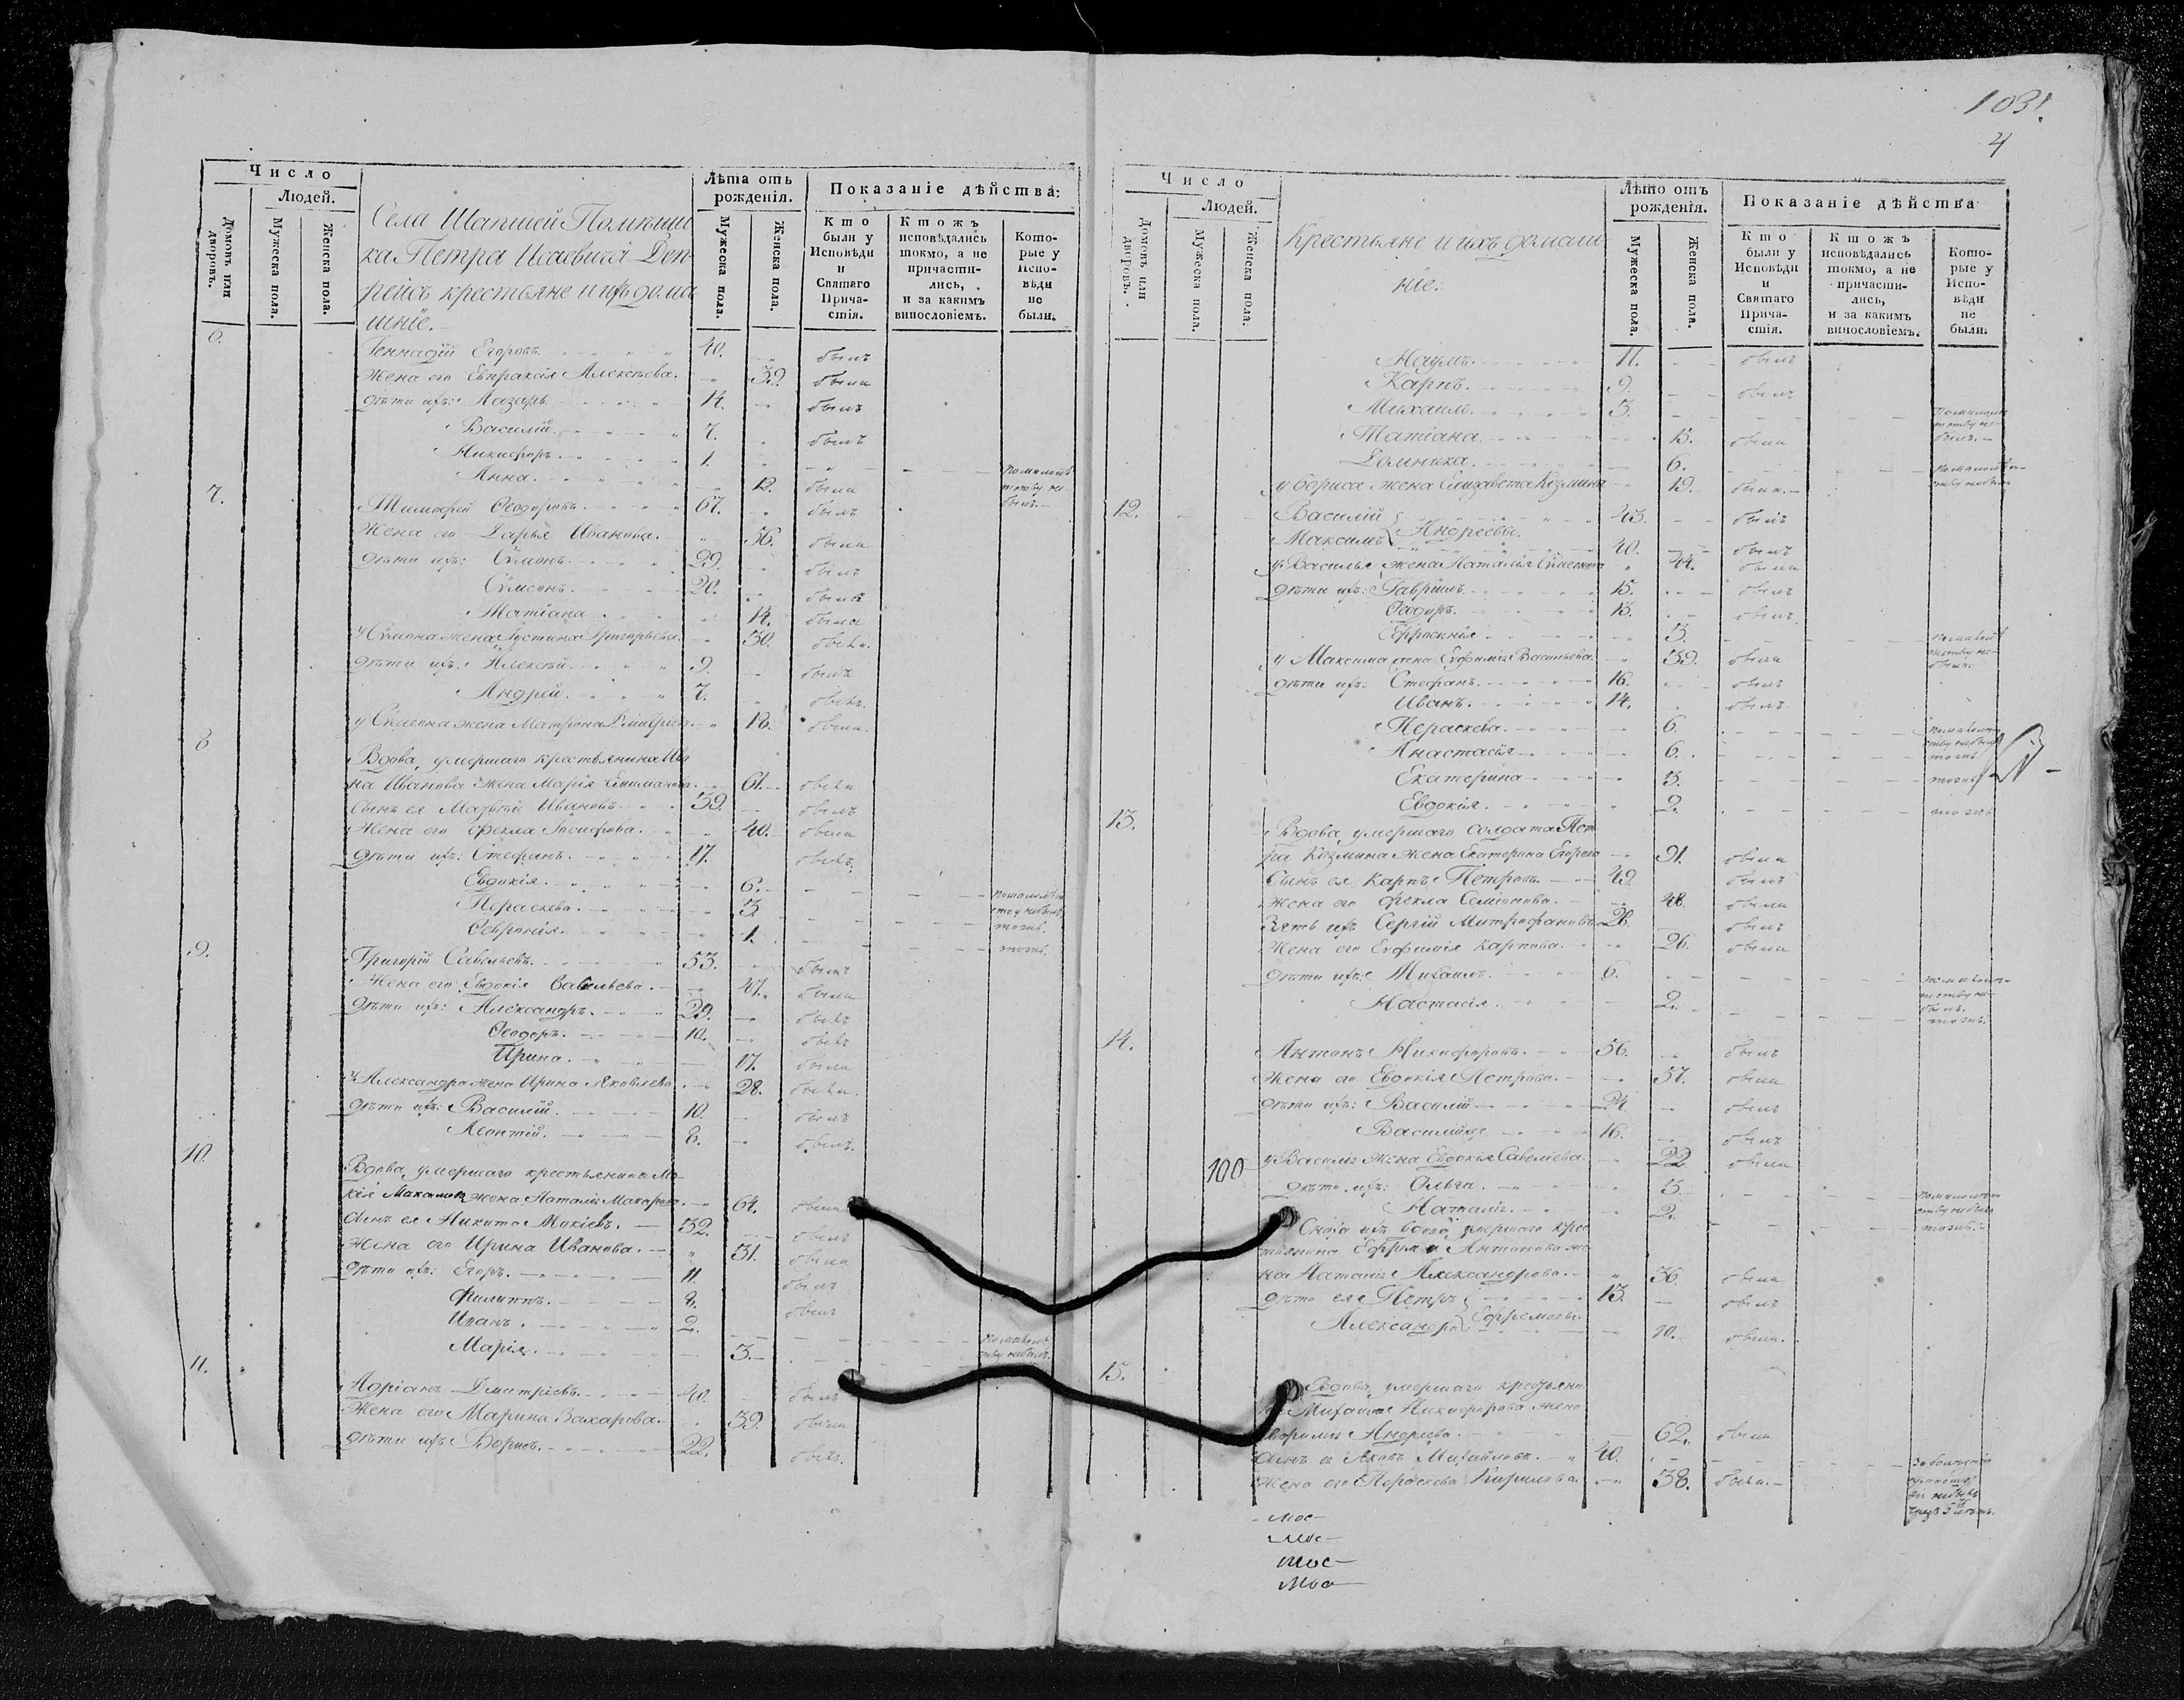 Число
Людей.
Домовъ или дворовъ.
Мужеска пола.
Женска пола.
Лѣта отъ рожденія.
Мужеска пола.
Женска пола.
Показаніе дѣйства:
Кто были у Исповѣди и Святаго Причастія.
Ктожъ исповѣдались токмо, а не причастились, и за какимъ винословіемъ.
Которые у Исповѣди не были.
Села Шапшей Помѣщи
ка Петра Исаевича Деп
рейсъ крестьяне и ихъ дома
шніе.
6. Геннадій Егоровъ. 40. былъ
Жена его Евпраксія Алексѣева. 39. была
дѣти ихъ: Лазарь 14. былъ
Василій. 7. былъ
Никифоръ. 1. по малолѣтству не былъ.
Анна. 12. была
7. Тимофей Ѳеодоровъ. 67. былъ
Жена его Дарья Иванова. 56. была
дѣти ихъ: Сѵмонъ. 29. былъ
Сѵмеонъ. 20. былъ
Татіана 14. была
у Сѵмона жена Іустина Григорьева. 30. была.
дѣти ихъ: Алексѣй. 9. былъ
Андрей. 7. былъ.
у Сѵмеона жена Матрона Дмитріева. 18. была.
8. Вдова, умершаго крестьянина Ива
на Иванова жена Марія 61. была
Сынъ ея Матвѣй Ивановъ. 39. былъ
Жена его Ѳекла Іосифова. 40. была
дѣти ихъ: Стефанъ. 17. былъ.
Евдокія. 6. по малолѣтству не была
Пераскева. 3. тожъ.
Февронія. 1. тожъ.
9. Григорій Савельевъ. 53. былъ
Жена его Евдокія Савельева. 47. была
дѣти ихъ: Александръ. 29. былъ
Ѳеодоръ. 10. былъ
Ирина. 17. была
у Александра жена Ирина Яковлева. 28. была.
дѣти ихъ: Василій. 10. былъ
Леонтій. 8. былъ.
10. Вдова, умершаго крестьянина Мо
кія Максимова жена Наталія Макарова. 64. была
Сынъ ея Никита Мокіевъ. 32. былъ
Жена его Ирина Иванова. 31. была
дѣти ихъ: Егоръ. 11. былъ
Филиппъ. 8. былъ
Иванъ. 2.
Марія. 3. по малолѣтству не былъ.
11. Адріанъ Дмитріевъ. 40. былъ
Жена его Марина Захарова. 39. была
дѣти ихъ Борисъ. 22. былъ.
1031.
4
Число
Людей.
Домовъ или дворовъ.
Мужеска пола.
Женска пола.
Лѣто отъ рожденія.
Мужеска пола.
Женска пола.
Показаніе дѣйства
Кто были у Исповѣди и Святаго Причастія.
Ктожъ исповѣдались токмо, а не причастились, и за какимъ винословіемъ.
Которые у Исповѣди не были.
Крестьяне и ихъ домаш
ніе:
Наумъ. 11. былъ
Карпъ. 9. былъ
Михаилъ. 3. по малолѣтству не былъ.
Татіана. 15. была
Домника. 6. по малолѣтству не была
у Бориса жена Елизавета Козмина 19. была.
12. Василій 43. былъ
Максимъ } Андреевы. 40. былъ
у Василья жена Наталія Сѵмеонова 44. была
дѣти ихъ: Гавріилъ. 15. былъ
Ѳеодоръ. 13. былъ.
Ефросинія 3. по малолѣтству не была.
у Максима жена Евфимія Васильева. 39. была
дѣти ихъ: Стефанъ. 16. былъ
Иванъ. 14. былъ.
Пераскева. 6. по малолѣтству не была
Анастасія 6. тожъ
Екатерина 3. тожъ
Евдокія. 2. тожъ
13. Вдова, умершаго солдата Пет
ра Козмина жена Екатерина Егорова 91. была
Сынъ ея Карпъ Петровъ. 49. былъ
Жена его Ѳекла Семіонова. 48. была
Зять ихъ Сергій Митрофановъ. 28. былъ
Жена его Евфимія Карпова. 26. была
дѣти ихъ: Михаилъ. 6. по малолѣтству не былъ.
Настасія. 2. тожъ.
14. Антонъ Никифоровъ. 56. былъ
Жена его Евдокія Петрова. 57. была
дѣти ихъ: Василій 24. былъ
Василій же 16. былъ
100
у Василія жена Евдокія Савельева. 22. была
дѣти ихъ: Ольга. 3. по малолѣтству не была
Наталія. 2. тожъ.
Сноха ихъ вдова, умершаго крес
тьянина Ефрема Антонова же
на Наталія Александрова. 36. была
дѣти ея Петръ 13. былъ
Александра } Ефремовы. 10. была.
15. Вдова, умершаго крестьяни
на Михаила Никифорова жена
Андреева. 62. была
Сынъ ея Яковъ Михайловъ. 40.
Жена его Пераскева Кирилова. 38. была.
мос
мос
мос
мос